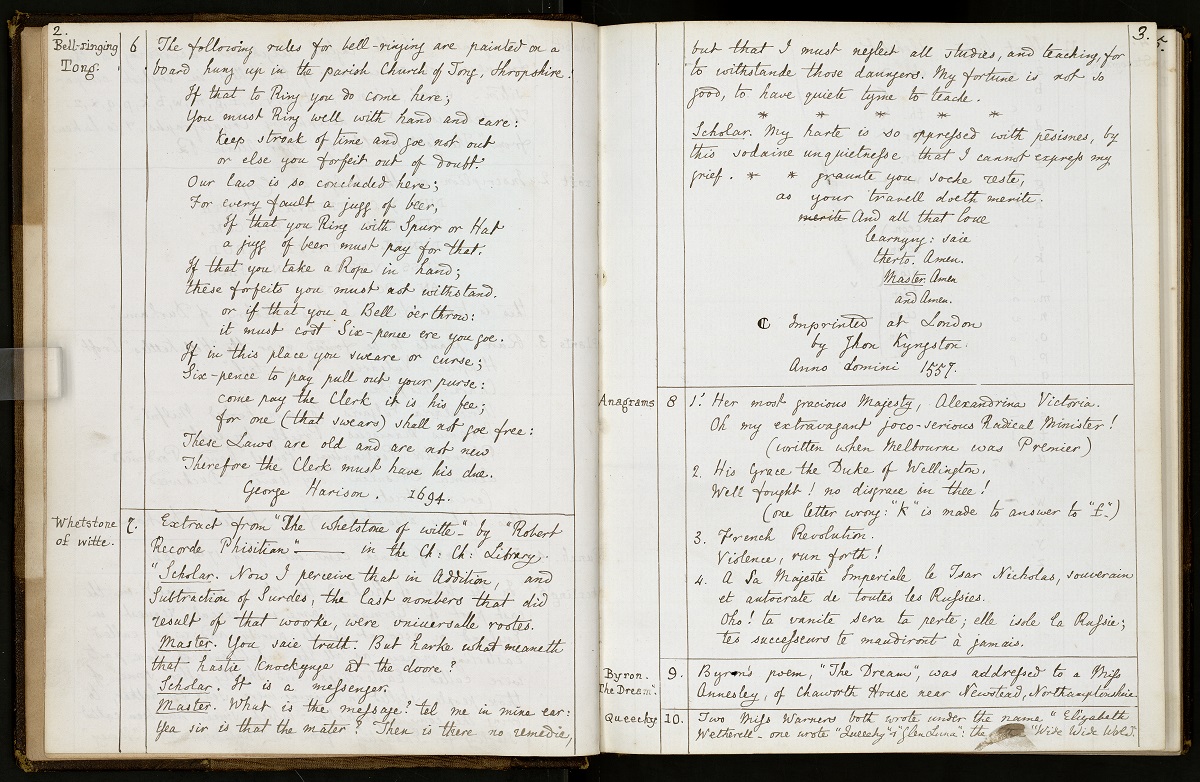 2.
Bell-ringing
Tong.
6
The following rules for bell-ringing are painted on a
board hung up in the parish church of Tong, Shropshire.
If that to Ring you do come here;
You must Ring well with hand and eare:
Keep stroak of time and goe not out
or else you forfeit out of doubt.
Our law is so concluded here;
For every fault a jugg of beer,
If that you Ring with Spurr or Hat
a jugg of beer must pay for that.
If that you take a Rope in hand;
these forfeits you must not withstand.
or if that you a Bell o'erthrow:
it must cost Six-pence ere you goe.
If in this place you sweare or curse;
Six-pence to pay pull out your purse:
come pay the Clerk it is his fee;
for one (that swears) shall not goe free:
These Laws are old and are not new
Therefore the Clerk must have his due.
George Harison. 1694.
Whetstone
of witte.
7.
Extract from "The whetstone of witte" by "Robert
Recorde Phisitian" —— in the Ch: Ch: Library.
"Scholar. Now I perceive that in Addition, and
Subtraction of Surdes, the last nombers that did
result of that woorke, were universalle rootes.
Master. You saie truth. But harke what meaneth
that hastie knockynge at the doore?
Scholar. It is a messenger.
Master. What is the message? tel me in mine ear:
Yea sir is that the mater? Then is there no remedie,
3.
5.
but that I must neglect all studies, and teaching, for
to withstande those daungers. My fortune is not so
good, to have quiete tyme to teache.
* * * * *
Scholar. My harte is so oppressed with pēsisnes, by
this sodaine unquietnesse that I cannot express my
grief. * * graunte you soche reste,
as your travell doeth merite.
merite And all that love
learnyng: saie
therto. Amen.
Master. Amen
and Amen.
₵ Imprinted at London
by Jhon Kyngston.
Anno domini 1557.
Anagrams
8
1. Her most gracious Majesty, Alexandrina Victoria.
Oh my extravagant joco-serious Radical Minister!
(written when Melbourne was Premier)
2. His Grace the Duke of Wellington.
Well fought! no disgrace in thee!
(one letter wrong: "k" is made to answer to "f.")
3. French Revolution.
Violence, run forth!
4. A Sa Majesté Imperiale le Tsar Nicholas, souverain
et autocrate de toutes les Russies.
Oho! ta vanite sera ta perte; elle isole la Russie;
tes successeurs te maudiront à jamais.
Byron.
"The Dream".
9.
Byron's poem, "The Dream", was addressed to a Miss
Annesley, of Chaworth House near Newstead, Northamptonshire
Queechy
10.
Two Miss Warners both wrote under the name "Elizabeth
Wetherell - one wrote "Queechy" & "Glen Luna": the "Wide Wide World".